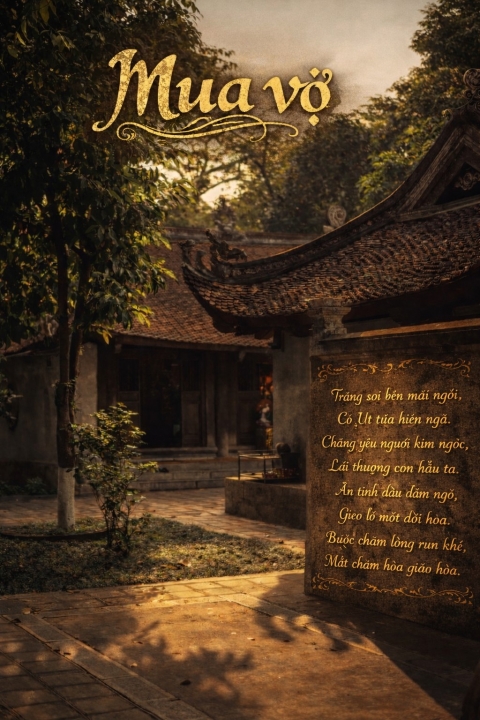 Mua vợ
Trăng soi bên mái ngồi,
Cô Út tựa hiên ngà.
Chẳng yêu người kim ngọc,
Lại thượng con hầu ta.
Ân tình dầu dăm ngõ,
Gieo lố một dồi hòa.
Bước chăm lồng run khẽ,
Mắt chăm hòa giáo hòa.